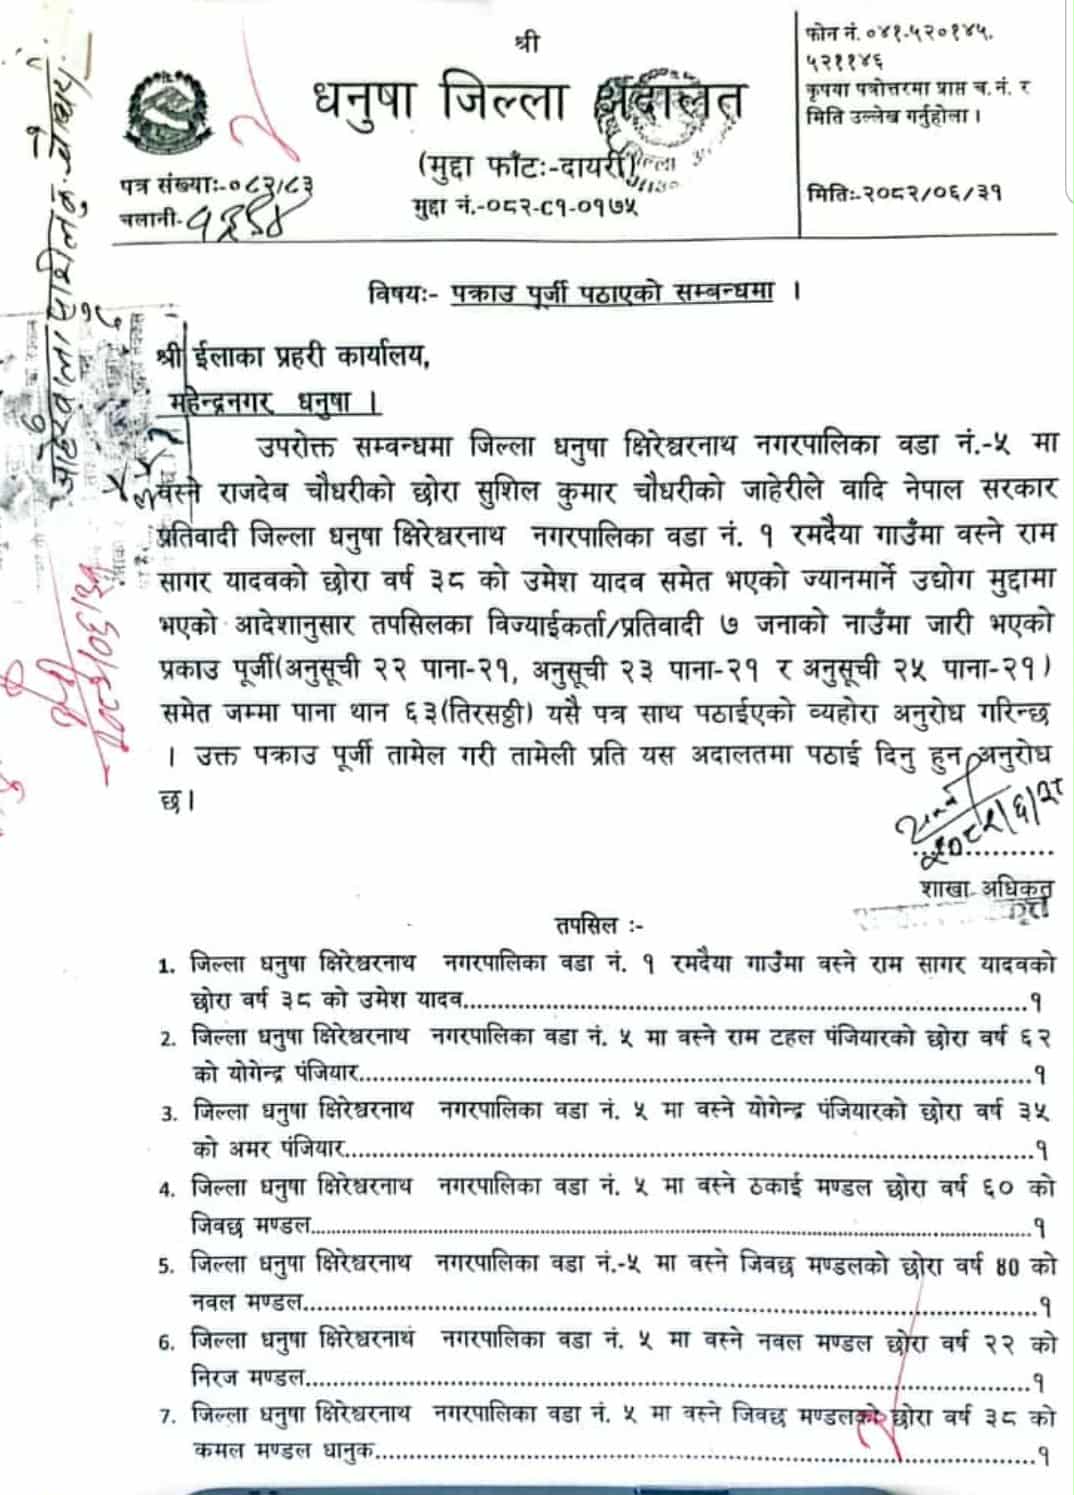 श्री
धनुषा जिल्ला अदालत
(मुद्दा फाँटः-दायरी)
मुद्दा नं.-०८२-C१-०१७५
पत्र संख्याः-०८२/८३
चलानी-
फोन नं. ०४१-५२०१४५,
५२११४६
कृपया पत्रोत्तरमा प्राप्त च. नं. र
मिति उल्लेख गर्नुहोला ।
मितिः-२०८२/०६/३१
विषयः- पक्राउ पूर्जी पठाएको सम्बन्धमा ।
श्री ईलाका प्रहरी कार्यालय,
महेन्द्रनगर धनुषा ।
उपरोक्त सम्बन्धमा जिल्ला धनुषा क्षिरेश्वरनाथ नगरपालिका वडा नं.-५ मा
वस्ने राजदेब चौधरीको छोरा सुशिल कुमार चौधरीको जाहेरीले वादि नेपाल सरकार
प्रतिवादी जिल्ला धनुषा क्षिरेश्वरनाथ नगरपालिका वडा नं. १ रमदैया गाउँमा वस्ने राम
सागर यादवको छोरा वर्ष ३८ को उमेश यादव समेत भएको ज्यानमार्ने उद्योग मुद्दामा
भएको आदेशानुसार तपसिलका विज्याईकर्ता/प्रतिवादी ७ जनाको नाउँमा जारी भएको
प्रकाउ पूर्जी(अनुसूची २२ पाना-२१, अनुसूची २३ पाना-२१ र अनुसूची २५ पाना-२१)
समेत जम्मा पाना थान ६३(तिरसठ्ठी) यसै पत्र साथ पठाईएको व्यहोरा अनुरोध गरिन्छ
। उक्त पक्राउ पूर्जी तामेल गरी तामेली प्रति यस अदालतमा पठाई दिनु हुन अनुरोध
छ।
शाखा अधिकृत
तपसिल :-
1. जिल्ला धनुषा क्षिरेश्वरनाथ नगरपालिका वडा नं. १ रमदैया गाउँमा वस्ने राम सागर यादवको
छोरा वर्ष ३८ को उमेश यादव..........१
2. जिल्ला धनुषा क्षिरेश्वरनाथ नगरपालिका वडा नं. ५ मा वस्ने राम टहल पंजियारको छोरा वर्ष ६२
को योगेन्द्र पंजियार..........१
3. जिल्ला धनुषा क्षिरेश्वरनाथ नगरपालिका वडा नं. ५ मा वस्ने योगेन्द्र पंजियारको छोरा वर्ष ३५
को अमर पंजियार..........१
4. जिल्ला धनुषा क्षिरेश्वरनाथ नगरपालिका वडा नं. ५ मा वस्ने ठकाई मण्डल छोरा वर्ष ६० को
जिवछ मण्डल..........१
5. जिल्ला धनुषा क्षिरेश्वरनाथ नगरपालिका वडा नं.-५ मा वस्ने जिवछ मण्डलको छोरा वर्ष ४0 को
नवल मण्डल..........१
6. जिल्ला धनुषा क्षिरेश्वरनाथ नगरपालिका वडा नं. ५ मा वस्ने नवल मण्डल छोरा वर्ष २२ को
निरज मण्डल..........१
7. जिल्ला धनुषा क्षिरेश्वरनाथ नगरपालिका वडा नं. ५ मा वस्ने जिवछ मण्डलको छोरा वर्ष ३८ को
कमल मण्डल धानुक..........१